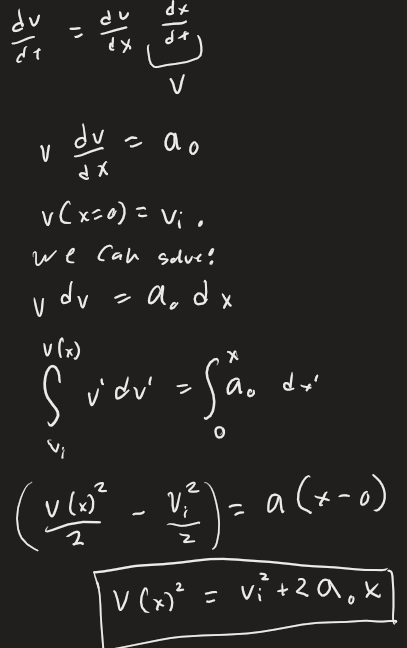 dv/dt = dv/dx dx/dt
v
v dv/dx = a₀
v(x=0) = vᵢ.
we can solve!
v dv = a₀ dx
∫_{vᵢ}^{v(x)} v' dv' = ∫_0^x a₀ dx'
(v(x)²/2 - vᵢ²/2) = a(x-0)
v(x)² = vᵢ² + 2a₀x